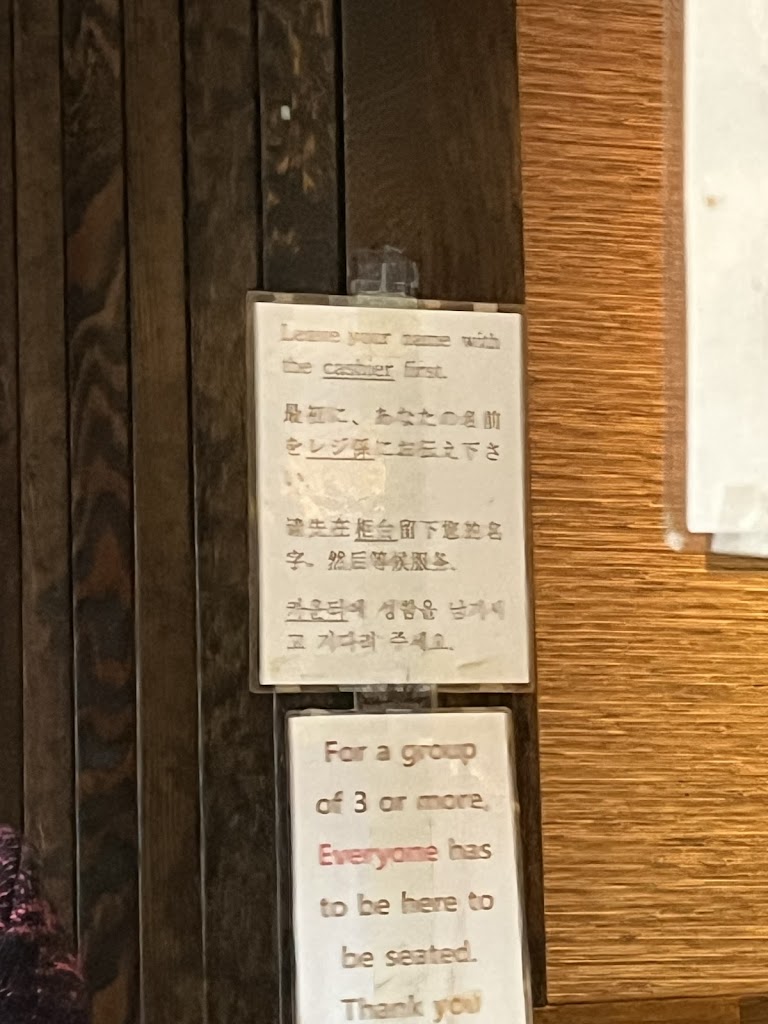 Leave your name with
the cashier first.
最初に、あなたの名前
をレジ係にお伝え下さ
い。
请先在柜台留下您的名
字。然后等候服务。
카운터에 성함을 남기시
고 기다려 주세요.
For a group
of 3 or more,
Everyone has
to be here to
be seated.
Thank you